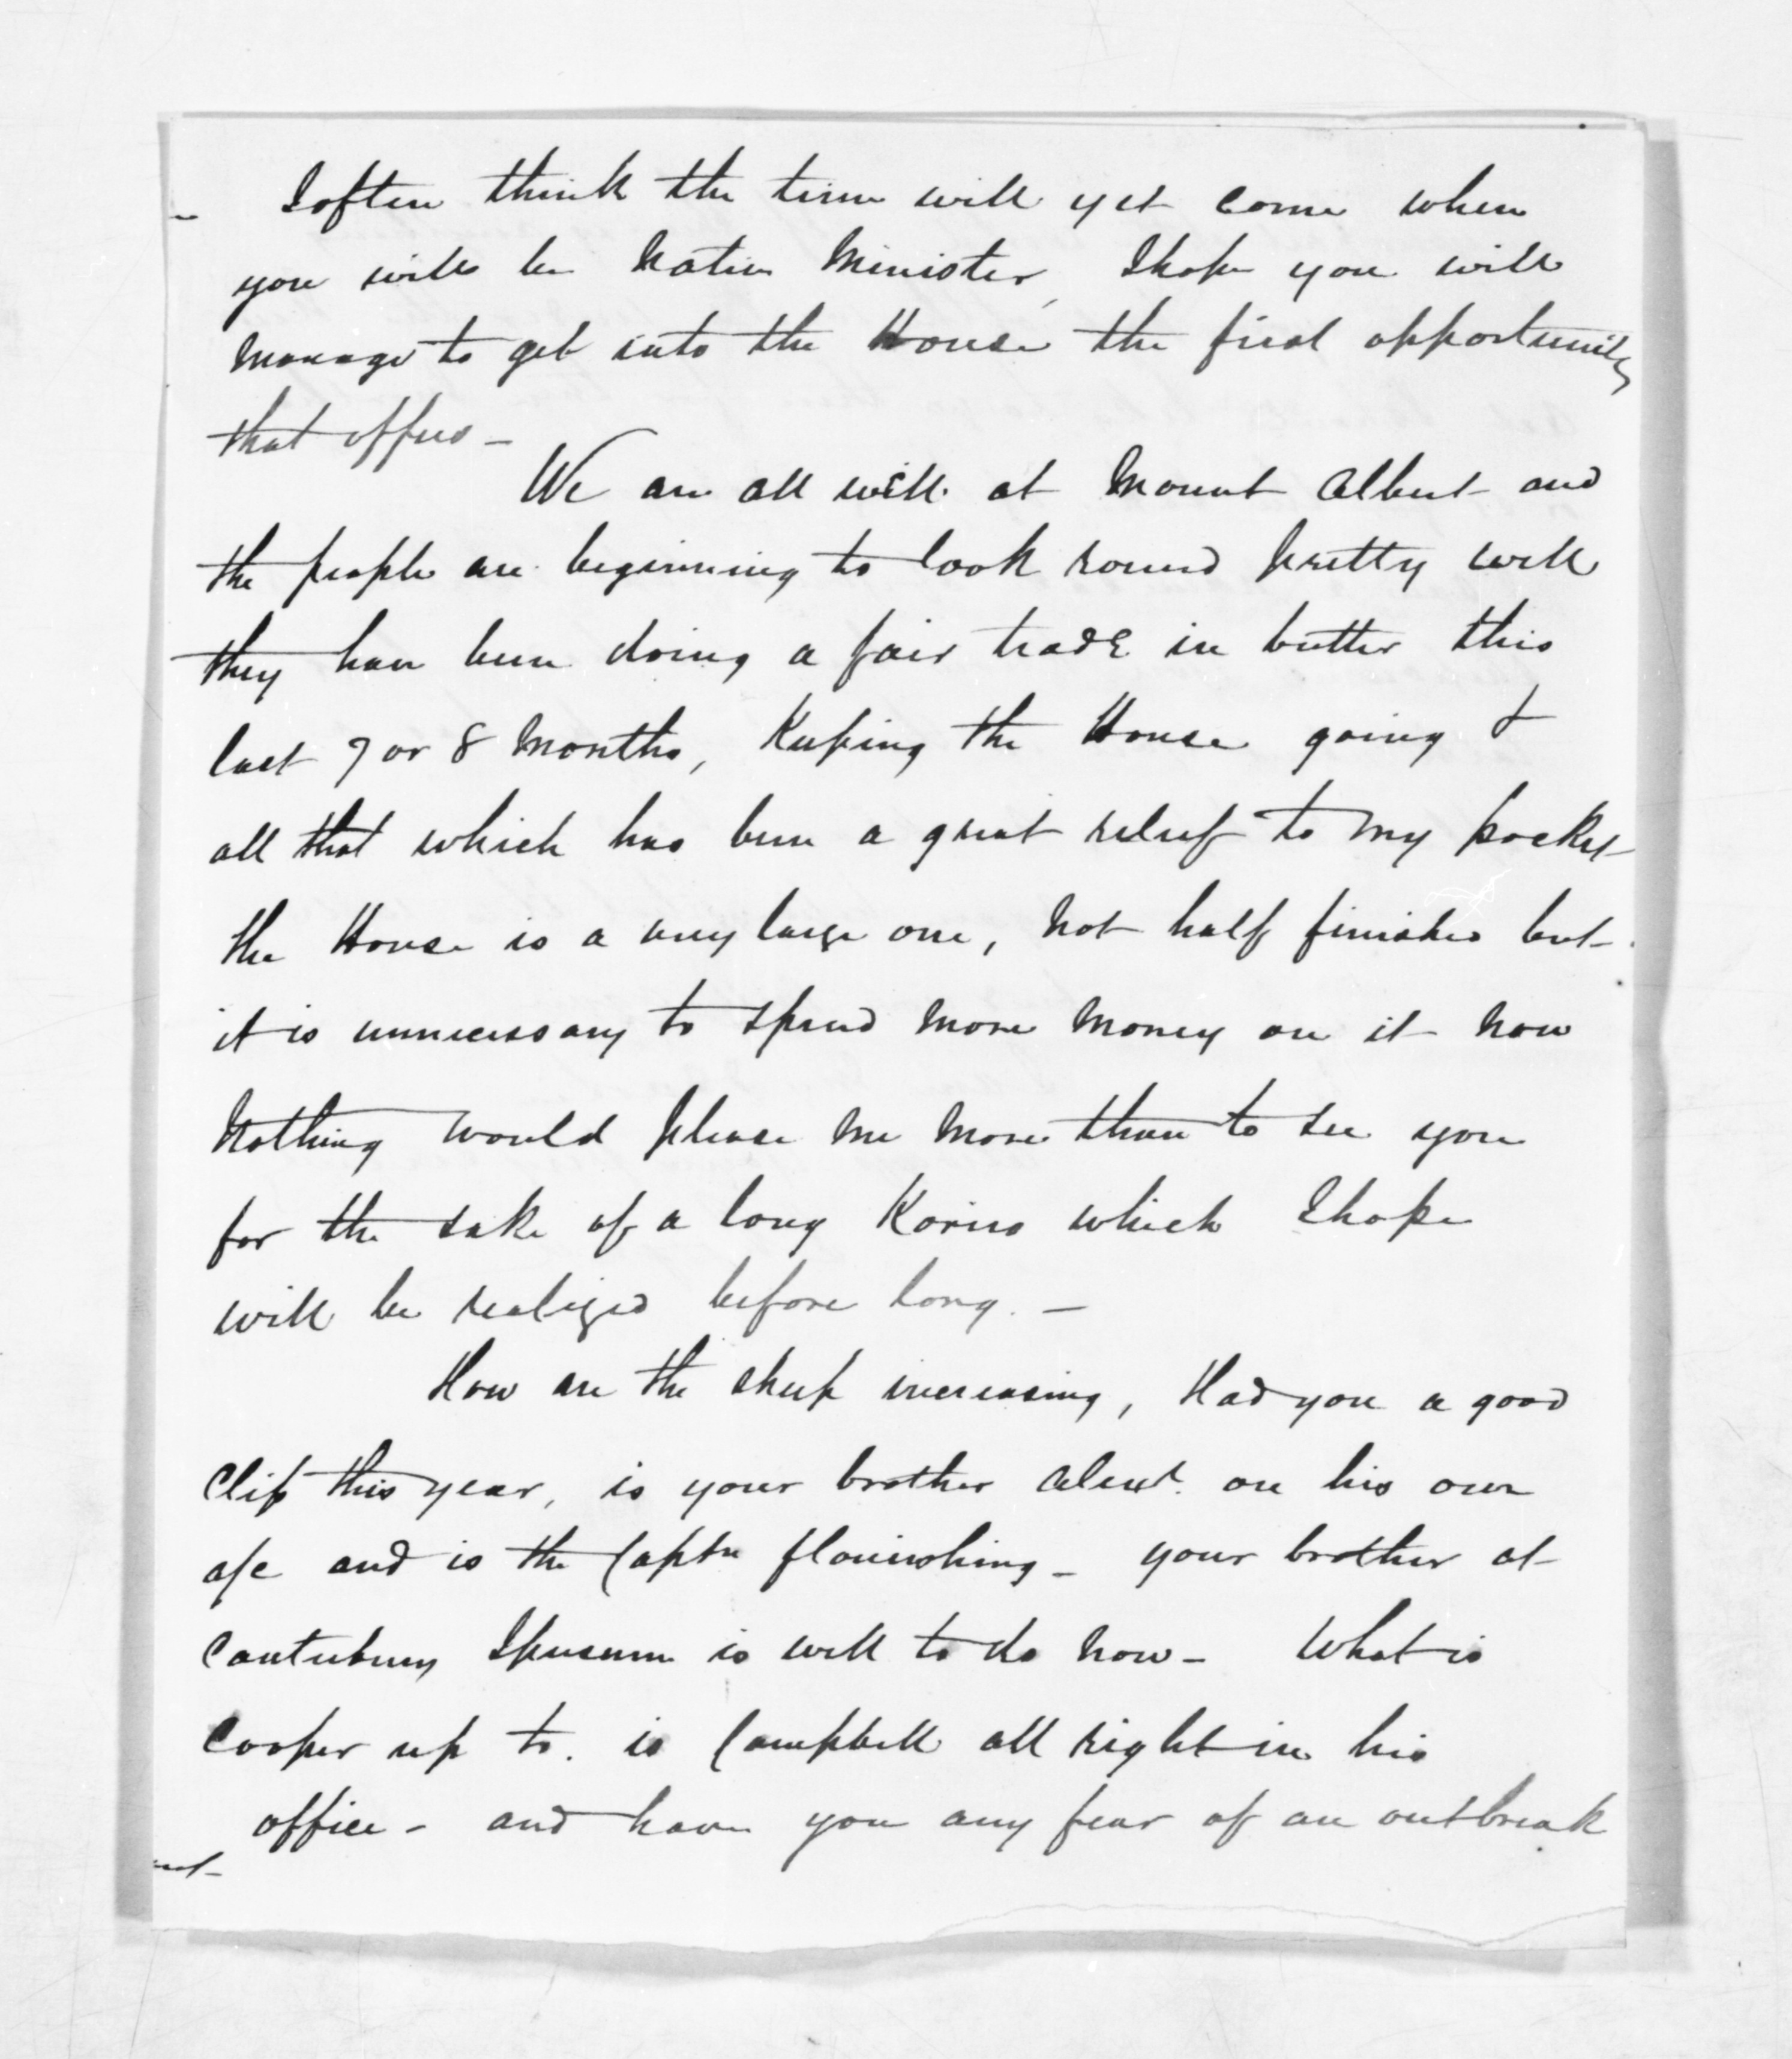 I often think the time will yet come when
you will be Native Minister, I hope you will
manage to get into the House the first opportunity
that offers -
We are all well at Mount Albert and
the people are beginning to look round pretty well
they have been doing a fair trade in butter this
last 7 or 8 months, Keeping the House going &
all that which has been a great relief to my pocket
the House is a very large one, not half finished but
it is unnecessary to spend more money on it now
Nothing would please me more than to see you
for the sake of a long Korero which I hope
will be realized before long. -
How are the sheep increasing, Had you a good
Clip this year, is your brother Alexr. on his own
a/c and is the Captn flourishing - your brother at
Canterbury I presume is well to do now - What is
Cooper up to. is Campbell all right in his
office - and have you any fear of an outbreak